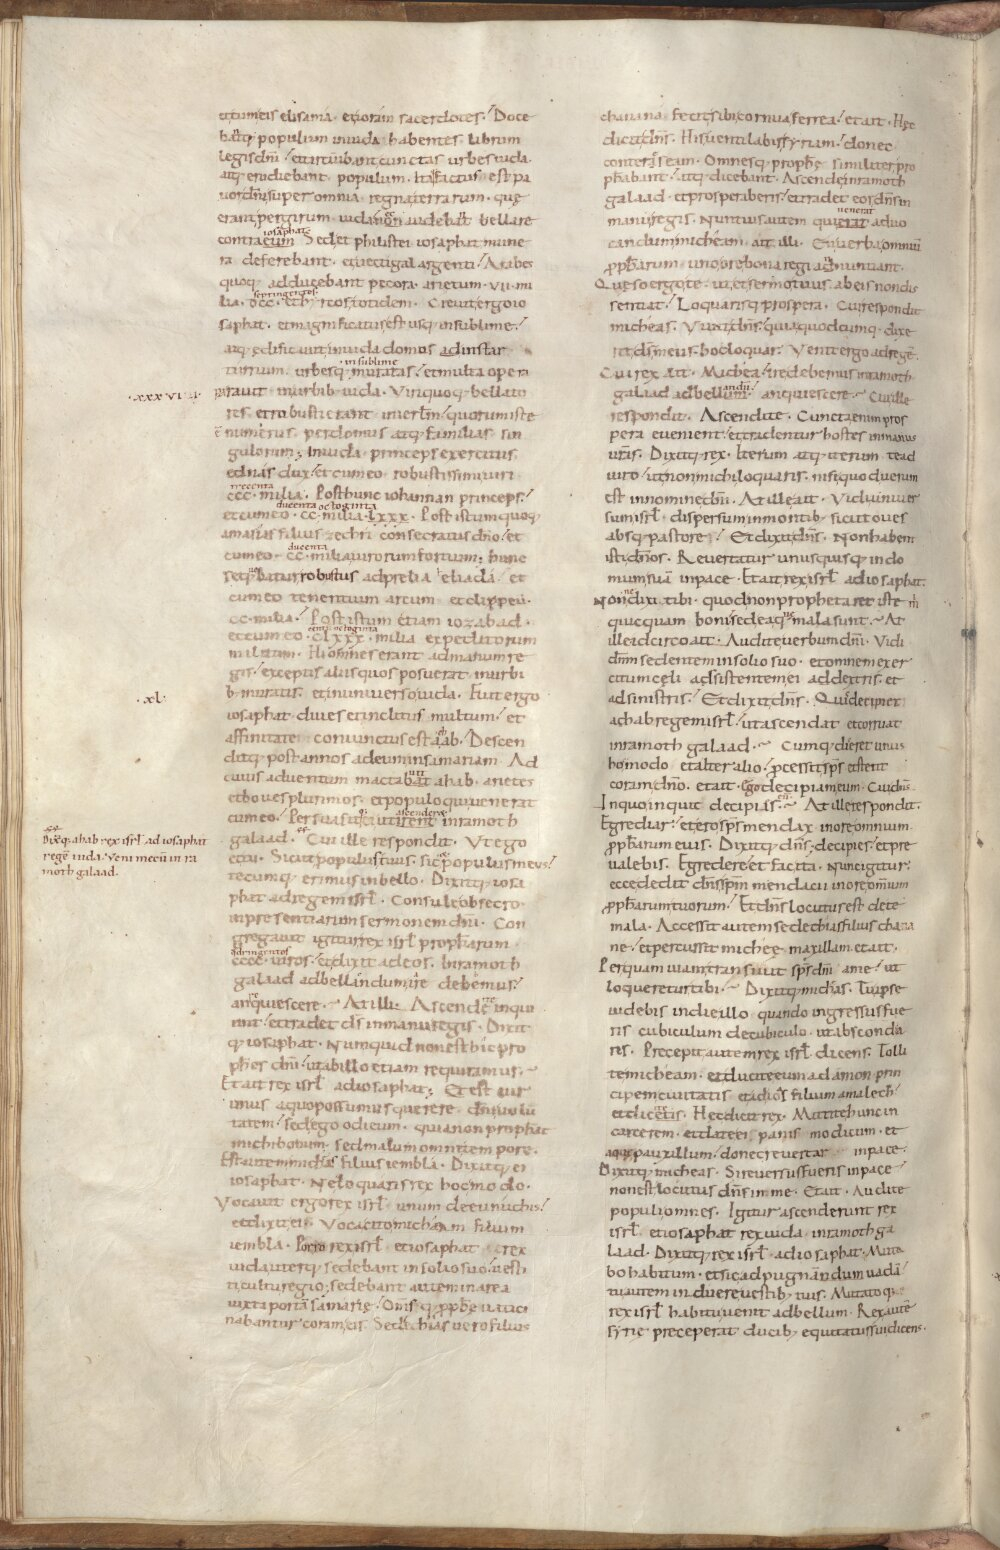 et cum eis elisama · et ioram sacerdotes / Doce
bantq; populum in iuda habentes librum
legis dn̄i / et circuibant cunctas urbes iuda ·
atq; erudiebant populum · Itaq; factus est pa
uor dn̄i super omnia regna terrarum · quę
erant per girum iuda non audebant bellare
iosaphat
contra eum Sed et philistei iosaphat mune
ra deferebant · et uectigal argenti / Arabes
quoq; adducebant pecora · arietum · VII · mi
septingentos
lia · DCC · et hircos totidem · Creuit ergo io
saphat · et magnificatus est usq; in sublime /
atq; ędificauit in iuda domos ad instar
in sublime
turrium · urbesq; muratas / et multa opera
· xxxviiii ·
parauit in urbib; iuda · Viri quoq; bellato
res · et robusti erant in ierl̄m / quorum iste
ē numerus · per domus atq; familias sin
gulorum ; In iuda princeps exercitus
ednas dux / et cum eo robustissimi uiri
trecenta
ccc · milia · Post hunc iohannan princeps /
ducenta octoginta
et cum eo · cc · milia · lxxx · Post istum quoq;
amasias filius zechri consecratus dn̄o / et
ducenta
cum eo · cc · milia uirorum fortium ; hunc
sequebatur robustus ad prelia eliada · et
cum eo tenentium arcum et clipeū ·
cc · milia · Post istum etiam iozabad ·
centum octoginta
et cum eo · clxxx · milia expeditorum
militum · Hi omnes erant ad manum re
gis / exceptis aliis quos posuerat in urbi
b; muratis · et in uniuerso iuda · Fuit ergo
· xl ·
iosaphat diues et inclitus multum / et
affinitate coniunctus est ahab · Descen
ditq; post annos ad eum in samariam · Ad
cuius aduentum mactauit ahab · arietes
et boues plurimos · et populo qui uenerat
ascenderet
cum eo / Persuasitq; ut iret in ramoth
galaad · Cui ille respondit · Vt ego
Dixitq; ahab rex isrl̄ ad iosaphat
regē iuda · Veni mecū in ra
moth galaad ·
et tu · Sicut populus tuus · sic et populus meus /
tecumq; erimus in bello · Dixitq; iosa
phat ad regem isrl̄ · Consule obsecro
in presentiarum sermonem dn̄i · Con
gregauit igitur rex isrl̄ prophetarum
quadringentos
cccc · uiros / et dixit ad eos · In ramoth
galaad ad bellandum ire debemus /
an quiescere · ~ At illi · Ascende inqui
unt / et tradet dś in manu regis · Dixit
q; iosaphat · Numquid non est hic pro
phetes dn̄i / ut ab illo etiam requiramus · ~
Et ait rex isrl̄ ad iosaphat ; Est uir
unus a quo possumus querere dn̄i uolun
tatem / sed ego odi eum · quia non prophetat
michi bonum · sed malum omni tempore ·
Est autem micheas filius iembla · Dixitq; ei
iosaphat · Ne loquaris rex hoc modo ·
Vocauit ergo rex isrl̄ · unum de eunuchis /
et dixit ei · Voca cito micheam filium
iembla · Porro rex isrl̄ · et iosaphat rex
iuda uterq; sedebant in solio suo / uesti
ti cultu regio ; sedebant autem in area
iuxta portā samarię / Oms̄q; prophetę uatici
nabantur coram eis · Sedechias uero filius
chanana · Fecit sibi cornua ferrea / et ait · Hęc
dicit dn̄s · His uentilabis syriam / donec
conteras eam · Omnesq; prophetę similiter pro
phetabant / atq; dicebant · Ascende in ramoth
galaad · et prosperaberis / et tradet eos dn̄s in
uenerat
manu regis · Nuntius autem qui erat ad uo
candum micheam · ait illi · En uerba omnium
prophetarum · uno ore bona regi adnuntiant ·
Quęso ergo te · ut et sermo tuus ab eis non dis
sentiat / Loquarisq; prospera · Cui respondit
micheas · Viuit dn̄s / quia quodcumq; dixe
rit ds̄ meus · hoc loquar · Venit ergo ad regē ·
Cui rex ait · Michea / ire debemus in ramoth
galaad ad bellandum / an quiescere · ~ Cui ille
respondit · Ascendite · Cuncta enim pros
pera euenient / et tradentur hostes in manus
ur̄as · Dixitq; rex · Iterum atq; iterum te ad
iuro / ut non michi loquaris · nisi quod uerum
est in nomine dn̄i · At ille ait · Vidi uniuer
sum isrl̄ · dispersum in montib; · sicut oues
absq; pastore / Et dixit dn̄s · Non habent
isti dn̄os · Reuertatur unusquisq; in do
mum suā in pace · Et ait rex isrl̄ ad iosaphat ·
Nonne dixi tibi · quod non prophetaret iste m̄
quicquam boni / sed ea quę mala sunt · ~ At
ille idcirco ait · Audite uerbum dn̄i · Vidi
dn̄m sedentem in solio suo · et omnem exer
citum cęli adsistentem ei a dextris · et
a sinistris / Et dixit dn̄s · Quis decipiet
achab regem isrl̄ / ut ascendat et corruat
in ramoth galaad · ~ Cumq; diceret unus
hoc modo · et alter alio / processit sps̄ et stetit
coram dn̄o · et ait · Ego decipiam eum · Cui dn̄s ·
In quo inquit decipies · ~ At ille respondit ·
Egrediar / et ero sps̄ mendax in ore omnium
prophetarum eius · Dixitq; dn̄s / decipies / et pre
ualebis · Egredere et fac ita · Nunc igitur
ecce dedit dn̄s sp̄m mendacii in ore omnium
prophetarum tuorum / Et dn̄s locutus est de te
mala · Accessit autem sedechias filius chana
ne / et percussit micheę maxillam et ait ·
Per quam uiam transiuit sps̄ dn̄i a me / ut
loqueretur tibi · ~ Dixitq; micheas · Tu ipse
uidebis in die illo quando ingressus fue
ris cubiculum de cubiculo · ut abscondā
ris · Precepit autem rex isrl̄ dicens · Tolli
te micheam · et ducite eum ad amon prin
cipem ciuitatis et ad ioas filium amalech /
et dicetis · Hec dicit rex · Mittite hunc in
carcerem · et date ei panis modicum · et
aquę pauxillum / donec reuertar in pace ·
Dixitq; micheas · Si reuersus fueris in pace /
non est locutus dn̄s in me · Et ait · Audite
populi omnes · Igitur ascenderunt rex
isrl̄ · et iosaphat rex iuda · in ramoth ga
laad · Dixitq; rex isrl̄ · ad iosaphat · Muta
bo habitum · et sic ad pugnandum uadā /
tu autem induere uestib; tuis · Mutatoq;
rex isrl̄ habitu / uenit ad bellum · Rex autē
syrię preceperat ducib; equitatus sui dicens ·